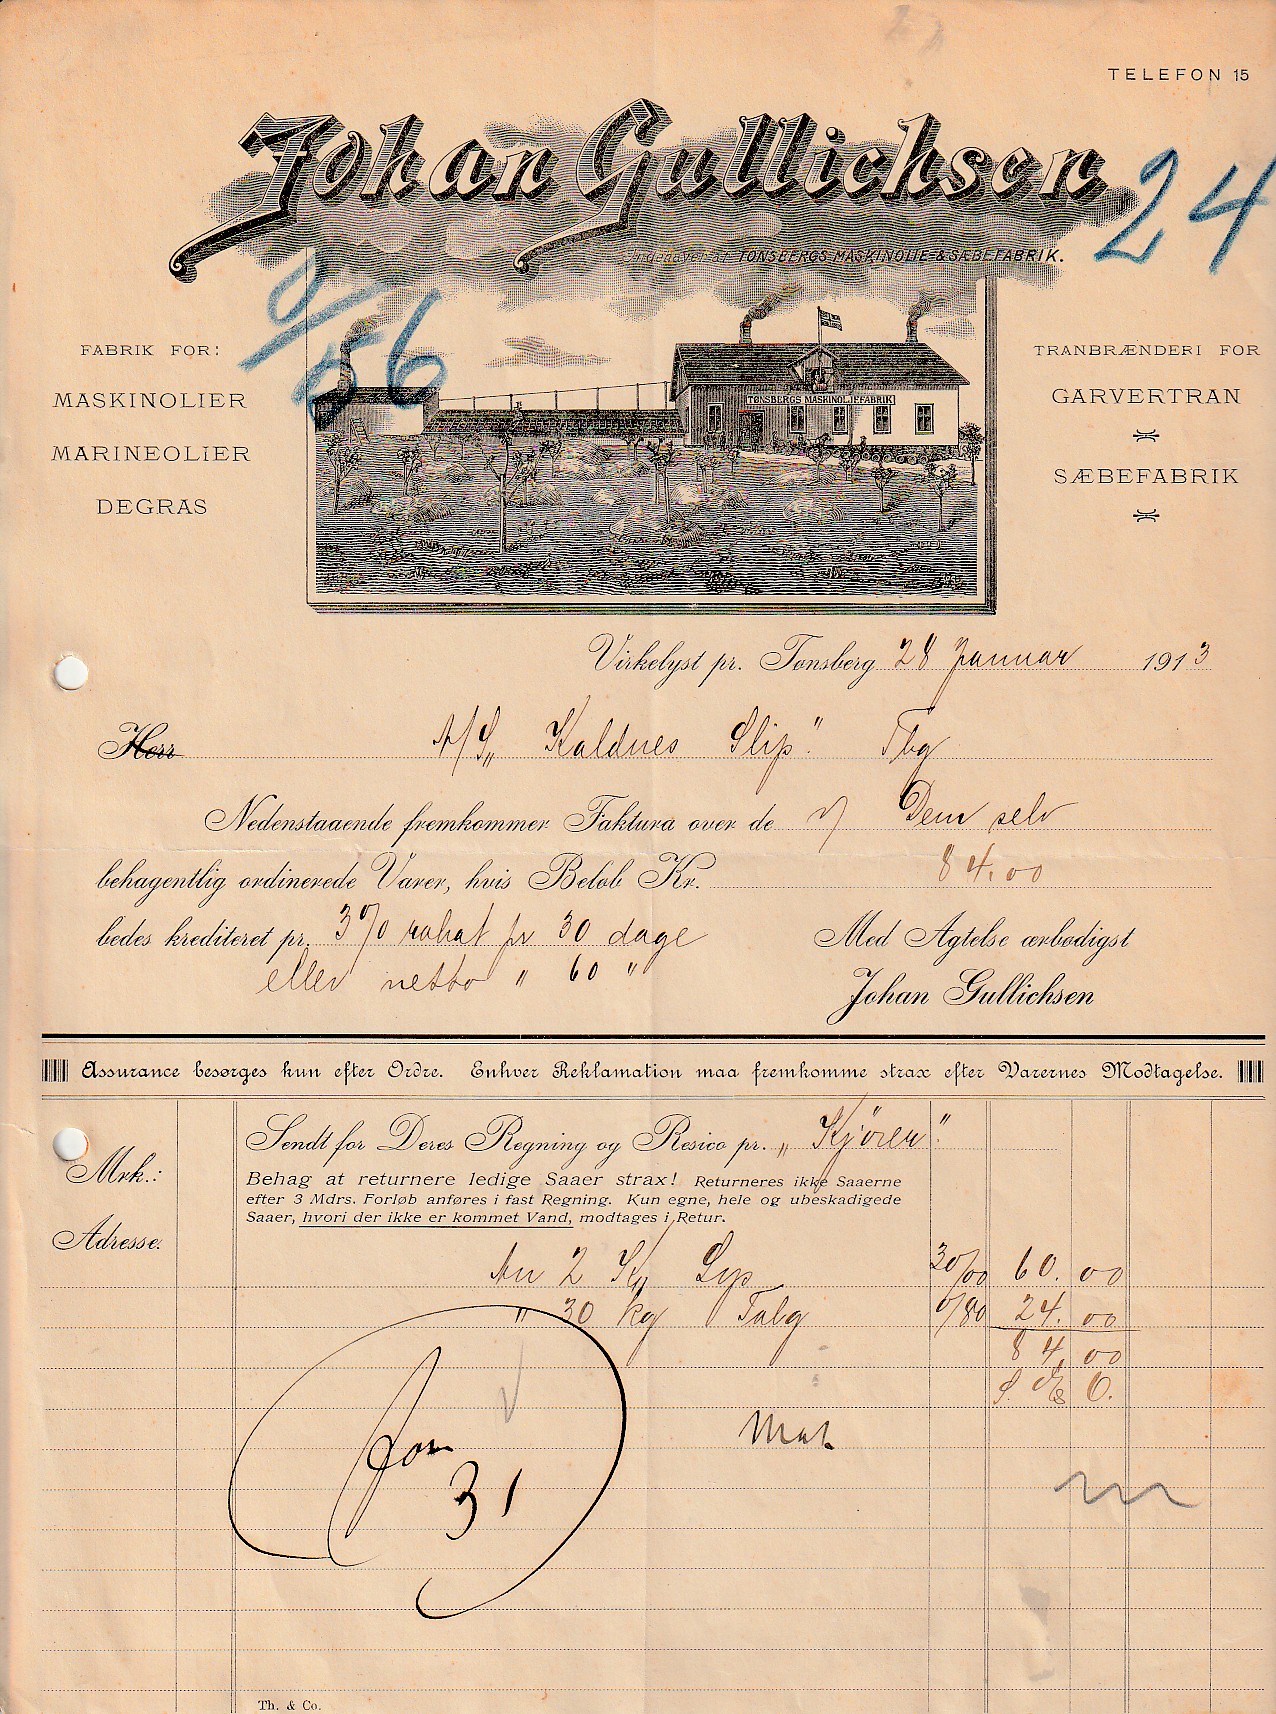 TELEFON 15
Johan Gullichsen
Indehaver af TØNSBERGS MASKINOLIE & SÆBEFABRIK.
24
2/56
FABRIK FOR:
MASKINOLIER
MARINEOLIER
DEGRAS
TØNSBERGS MASKINOLIEFABRIK
TRANBRÆNDERI FOR
GARVERTRAN
SÆBEFABRIK
Virkelyst pr. Tønsberg 28 Januar 1913
Herr A/S „Kaldnes Slip" Tbg
Nedenstaaende fremkommer Faktura over de v/ Dem selv
behagentlig ordinerede Varer, hvis Beløb Kr. 84.00
bedes krediteret pr. 3% rabat pr 30 dage
eller netto " 60 "
Med Agtelse ærbødigst
Johan Gullichsen
Assurance besørges kun efter Ordre. Enhver Reklamation maa fremkomme strax efter Varernes Modtagelse.
Mrk.:
Adresse:
Sendt for Deres Regning og Resico pr. „Kjören"
Behag at returnere ledige Saaer strax! Returneres ikke Saaerne
efter 3 Mdrs. Forløb anføres i fast Regning. Kun egne, hele og ubeskadigede
Saaer, hvori der ikke er kommet Vand, modtages i Retur.
An 2 Kg 30/00 60.00
" 30 kg Talg 0/80 24.00
84.00
Jan
31
Th. & Co.